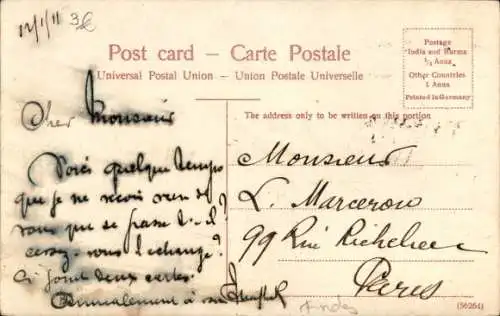 12/1/11 3
Post card – Carte Postale
Universal Postal Union – Union Postale Universelle
Postage
India and Burma
½ Anna
Other Countries
1 Anna
Printed in Germany
The address only to be written on this portion
Cher Monsieur
Voici quelque temps
que je ne reçois rien de
vous que se passe t-il?
cessez-vous l'échange?
Ci joint deux cartes.
Monsieur
L. Marcerou
99 Rue Richelieu
Paris
Indes
(56264)